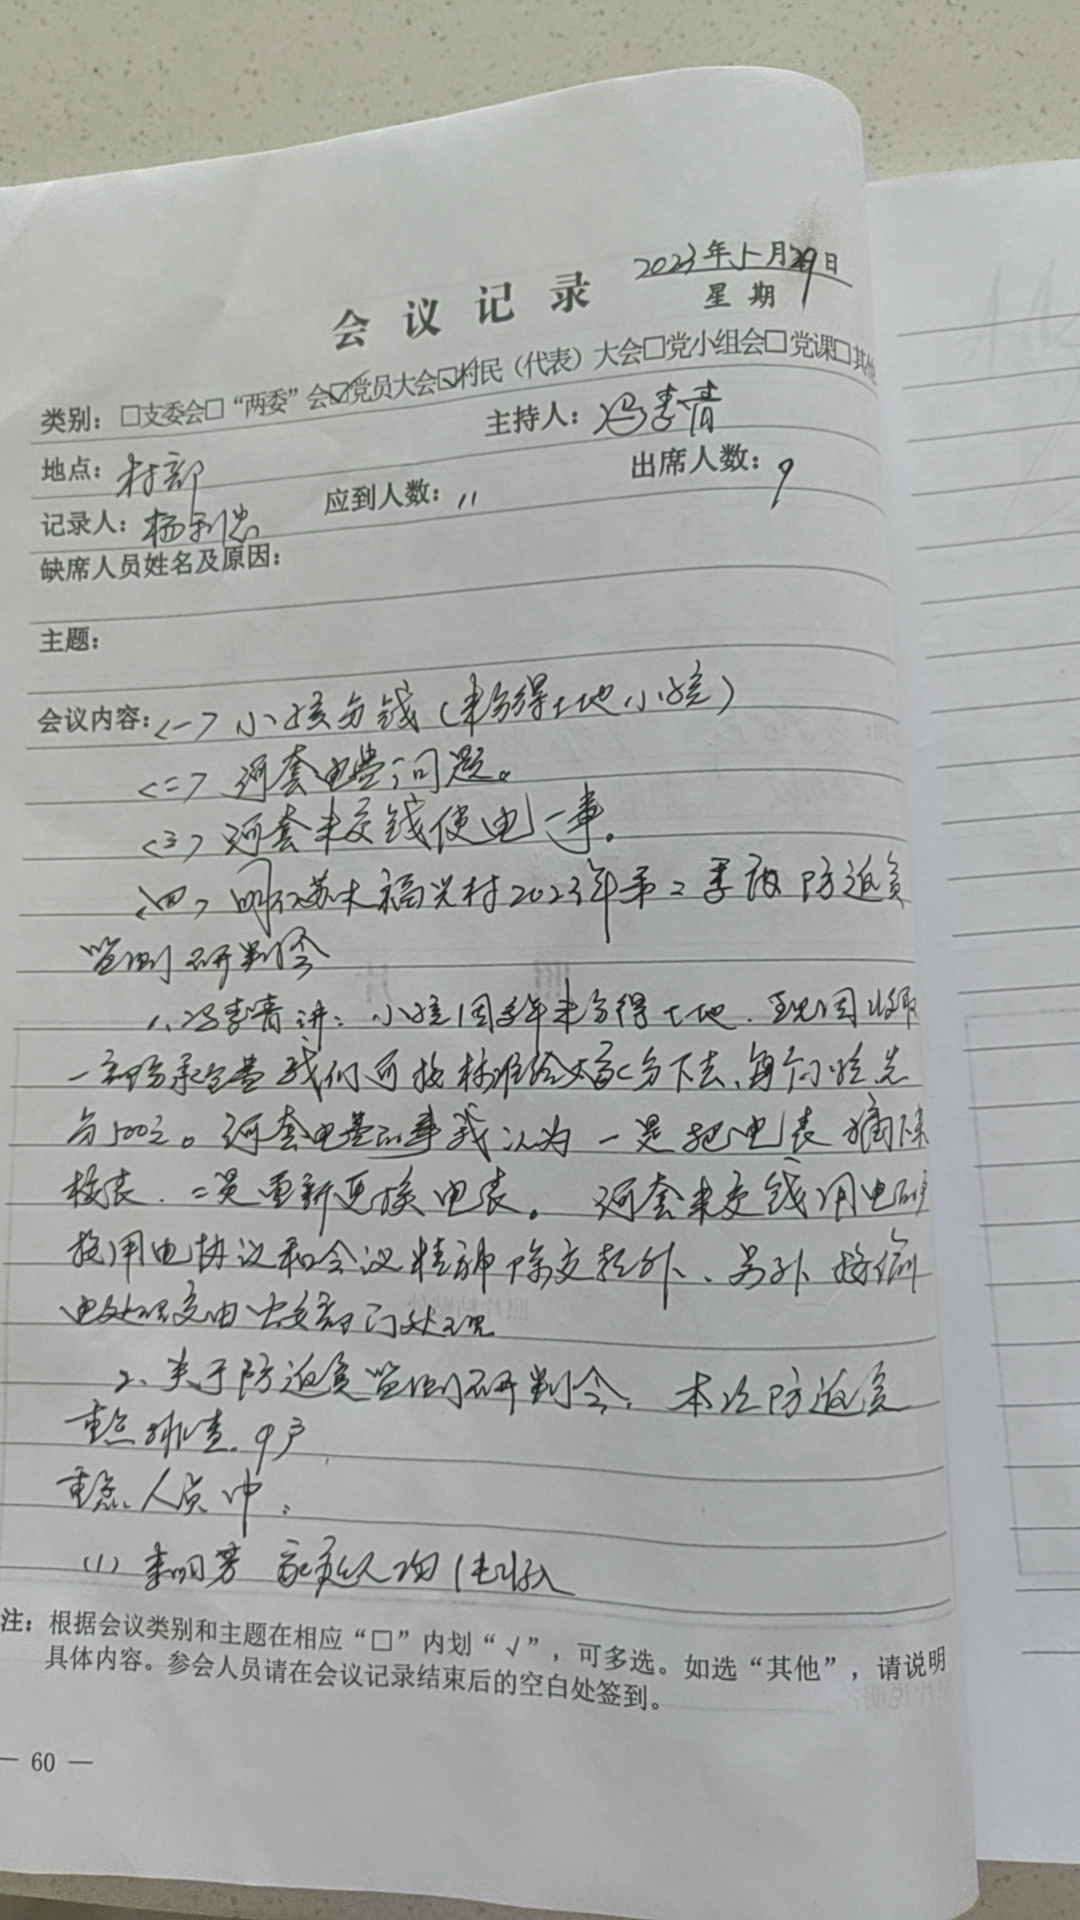 2023年5月29日
会议记录
星期
类别：□支委会□“两委”会☑党员大会☑村民（代表）大会□党小组会□党课□其他
主持人：冯李青
地点：村部
出席人数：9
应到人数：11
记录人：杨利忠
缺席人员姓名及原因：
主题：
会议内容：<一>小孩分钱（未分得土地小孩）
<二>河套电费问题。
<三>河套未交钱使电一事。
<四>明仁苏木福兴村2023年第2季度防返贫
监测研判会
1、冯李青讲：小孩因多年未分得土地．现因收取
一部分承包费我们可按标准给大家分下去、每个小孩先
分500元。河套电费的事我认为一是把电表摘下来
校表．二是重新更换电表。河套未交钱用电的
按用电协议和会议精神除交款外、另外按偷
电处理交由有关部门处理
2、关于防返贫监测研判会：本次防返贫
重点排查．9户
重点人员中：
（1）李明芳 家庭人均纯收入
注：根据会议类别和主题在相应“□”内划“√”，可多选。如选“其他”，请说明
具体内容。参会人员请在会议记录结束后的空白处签到。
— 60 —